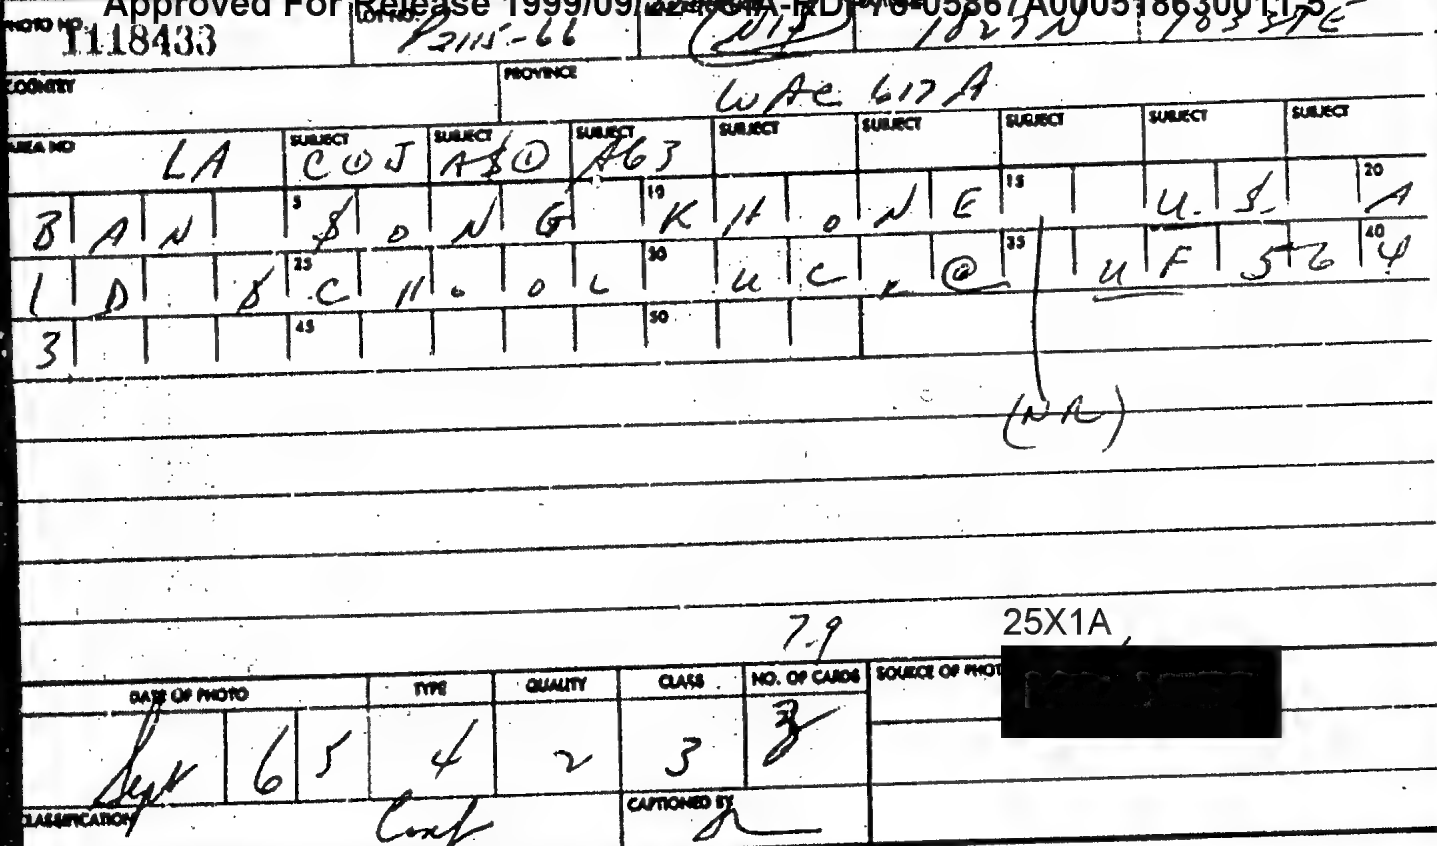 Approved For Release 1999/09/22 : CIA-RDP78-05867A000518630011-5
PHOTO NO. 1118433 LOT NO. P2115-66 (NIP) 1827N 10337E
COUNTRY PROVINCE WAC 617A
AREA NO LA SUBJECT COJ SUBJECT ASO SUBJECT A63 SUBJECT SUBJECT SUBJECT SUBJECT SUBJECT
BAN 5 SONG 10 KHONE 15 U.S. 20 A
ID S 25 CHOOL 30 UCK@ 35 UF 564 40
3 45 50
(NR)
7.9 25X1A
DATE OF PHOTO TYPE QUALITY CLASS NO. OF CARDS SOURCE OF PHOTO
Sept 65 4 2 3
CLASSIFICATION Conf CAPTIONED BY